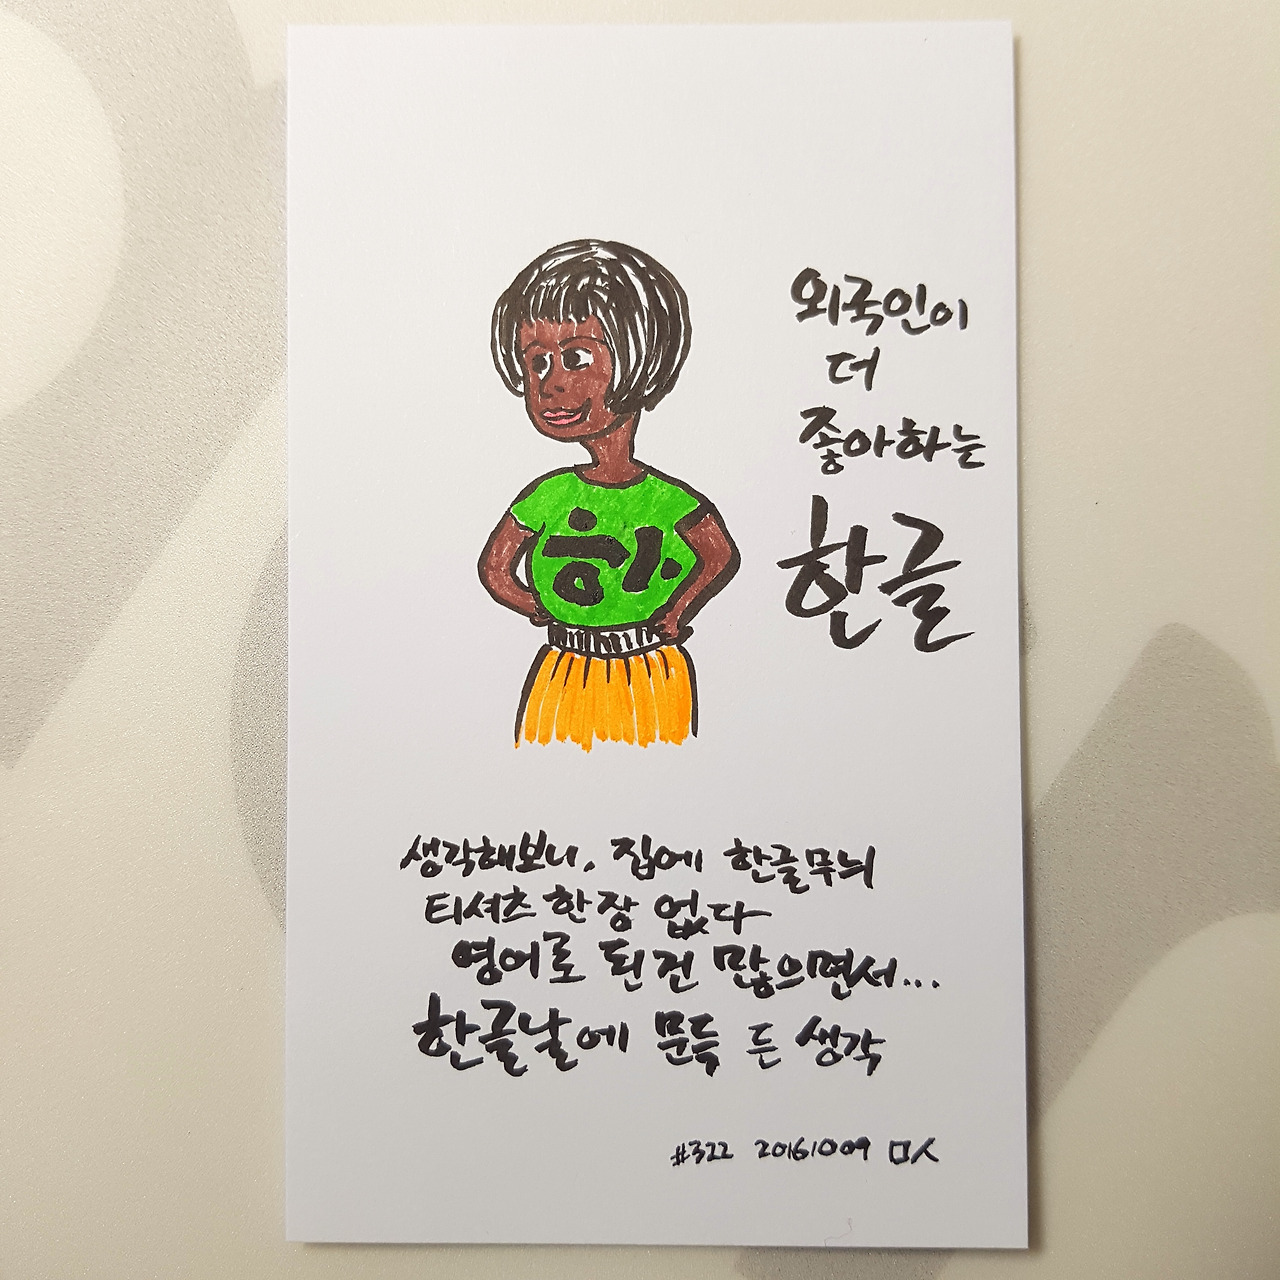 외국인이
더
좋아하는
한글
하
생각해보니, 집에 한글무늬
티셔츠 한장 없다
영어로 된건 많으면서...
한글날에 문득 든 생각
#322 20161009 ㅁㅅ